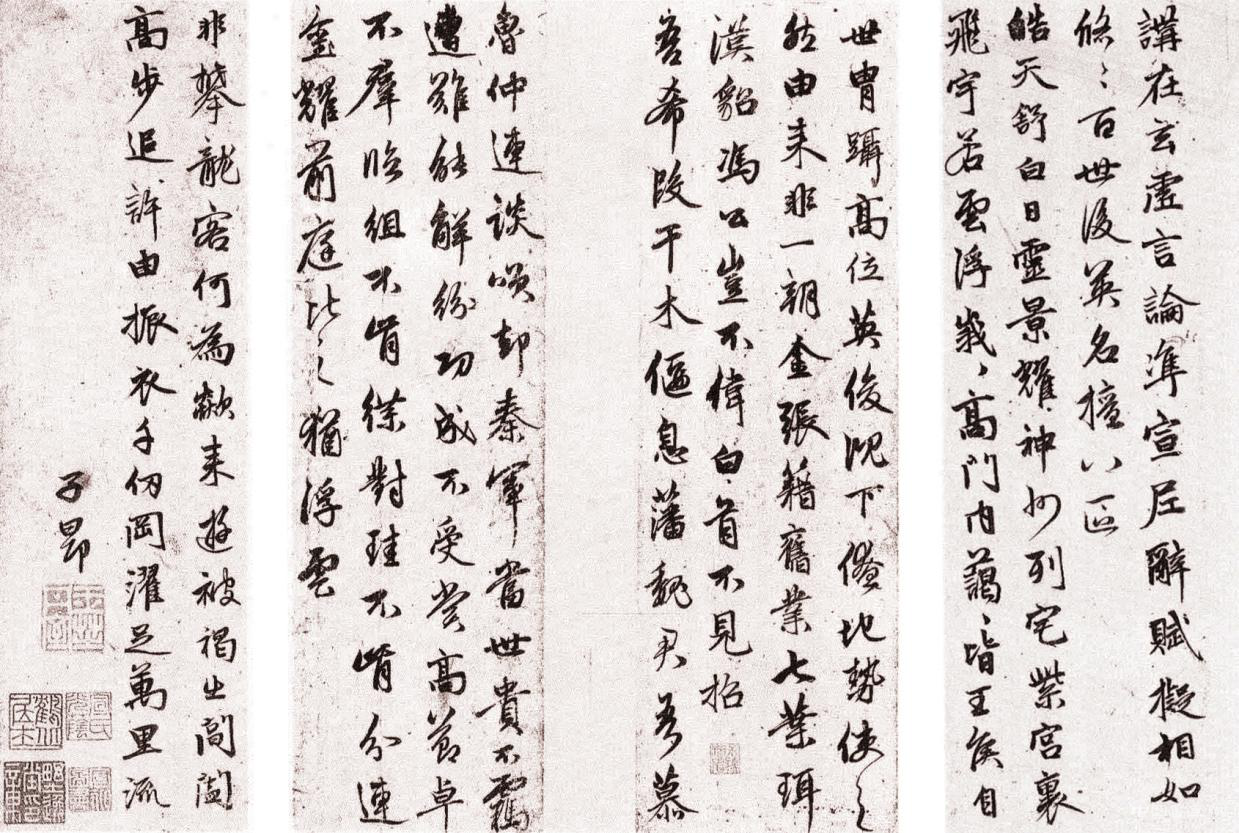 講在玄虛言論準宣尼辭賦擬相如
悠〻百世後英名擅八區
皓天舒白日靈景耀神州列宅紫宮裏
飛宇若雲浮峩〻高門內藹〻皆王侯自
世冑躡高位英俊沉下僚地勢使之
然由来非一朝金張籍舊業七葉珥
漢貂馮公豈不偉白首不見招
吾希段干木偃息藩魏君吾慕
魯仲連談咲却秦軍當世貴不羈
遭難能解紛功成不受賞高節卓
不羣臨組不肯緤對珪不肯分連
璽耀前庭比之猶浮雲
非攀龍客何為欻来遊被褐出閶闔
高步追許由振衣千仞岡濯足萬里流
子昂